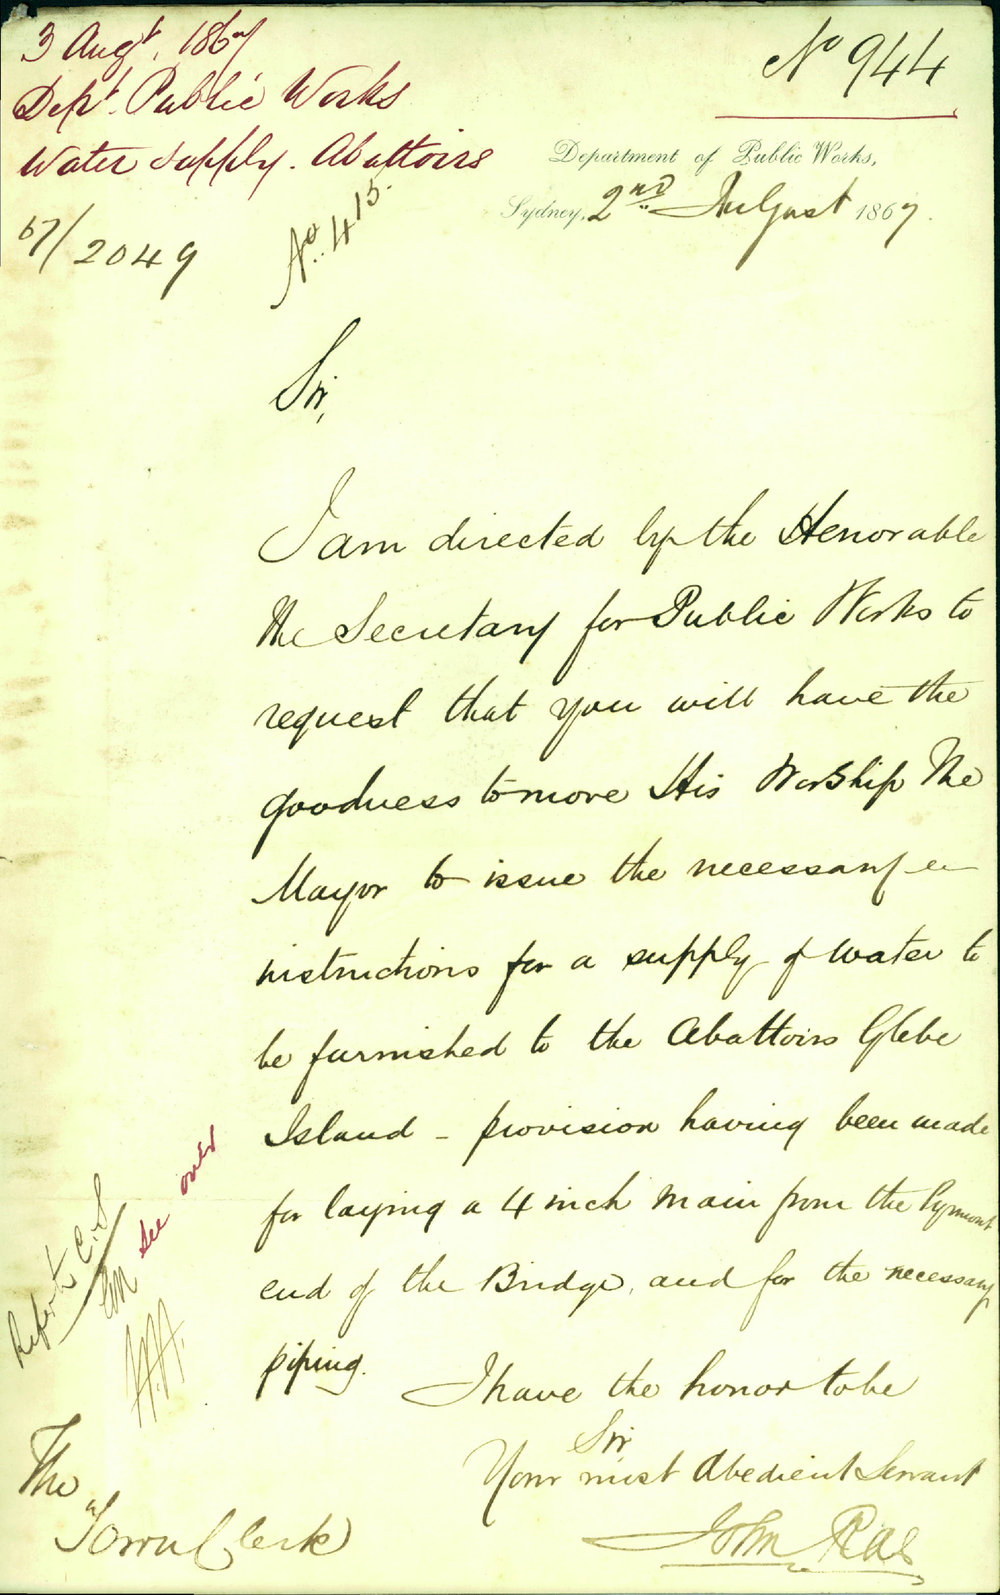 3 Augt. 1867
Dept. Public Works
Water Supply. Abattoirs
67/2049
No. 415.
No 944
Department of Public Works,
Sydney, 2nd August 1867.
Sir,
I am directed by the Honorable
the Secretary for Public Works to
request that you will have the
goodness to move His Worship The
Mayor to issue the necessary
instructions for a supply of water to
be furnished to the Abattoirs Glebe
Island - provision having been made
for laying a 4 inch main from the Pyrmont
end of the Bridge, and for the necessary
piping.
I have the honor to be
Sir,
Your most Obedient Servant
John Rae
Refer to C.S
see over
The
Town Clerk